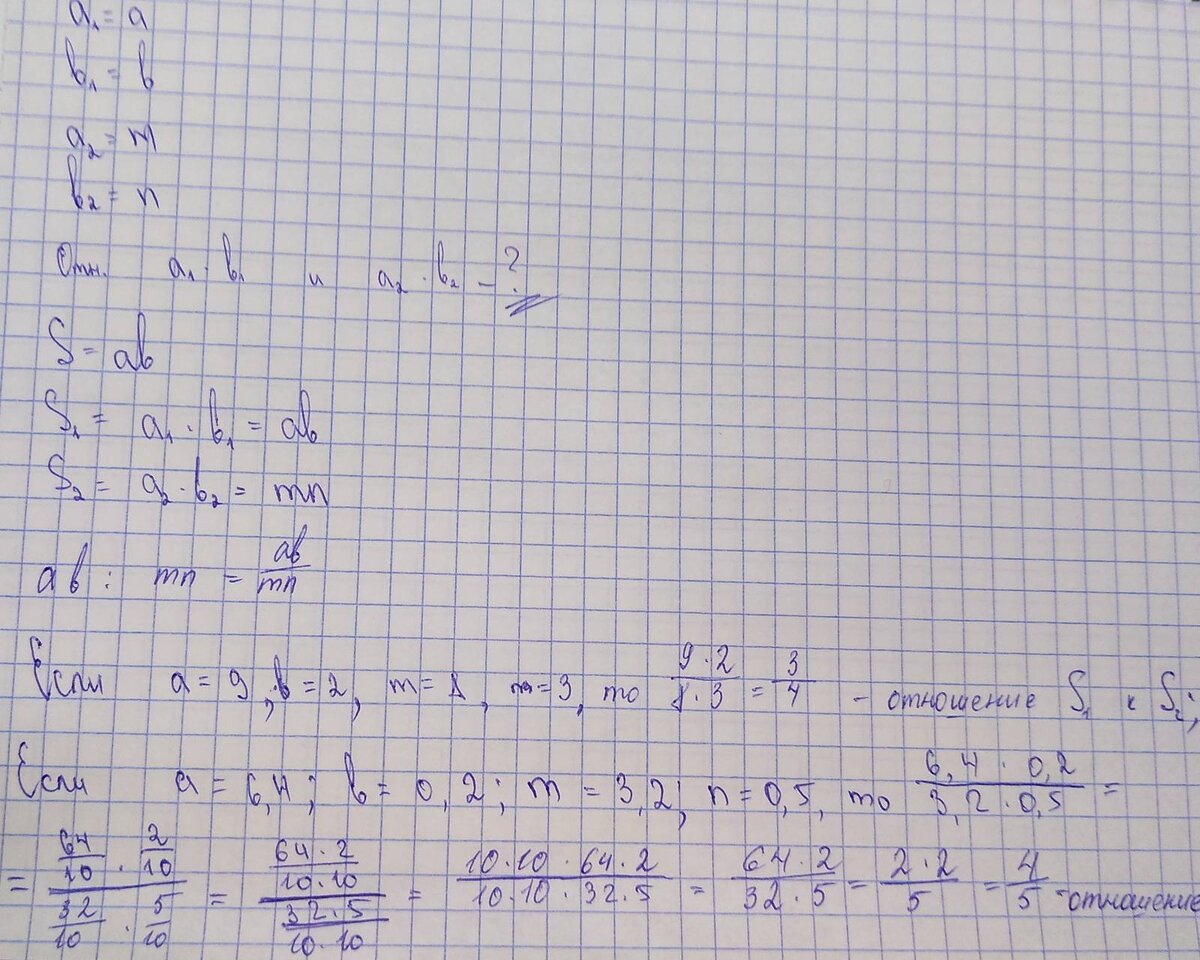 a₁ = a
b₁ = b
a₂ = m
b₂ = n
Отн. a₁ · b₁ и a₂ · b₂ - ?
S = ab
S₁ = a₁ · b₁ = ab
S₂ = a₂ · b₂ = mn
ab : mn = ab/mn
Если a = 9, b = 2, m = 8, m = 3, то (9 · 2)/(8 · 3) = 3/4 - отношение S₁ к S₂;
Если a = 6,4; b = 0,2; m = 3,2; n = 0,5, то (6,4 · 0,2)/(3,2 · 0,5) =
= (64/10 · 2/10)/(32/10 · 5/10) = ((64 · 2)/(10 · 10))/((32 · 5)/(10 · 10)) = (10 · 10 · 64 · 2)/(10 · 10 · 32 · 5) = (64 · 2)/(32 · 5) = (2 · 2)/5 = 4/5 - отношение